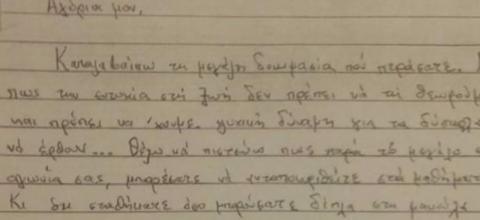 Αγόρια μου,
Καταλαβαίνω τη μεγάλη δοκιμασία που περάσατε.
πως την ευτυχία στη ζωή δεν πρέπει να τη θεωρούμ
και πρέπει να 'χουμε ψυχική δύναμη για τα δύσκολ
να έρθουν... Θέλω να πιστεύω πως παρά το μεγάλο
αγωνία σας, μπορέσατε να ανταποκριθείτε στα μαθήματ
Κι ότι σταθήκατε όσο μπορέσατε δίπλα στη μανούλα